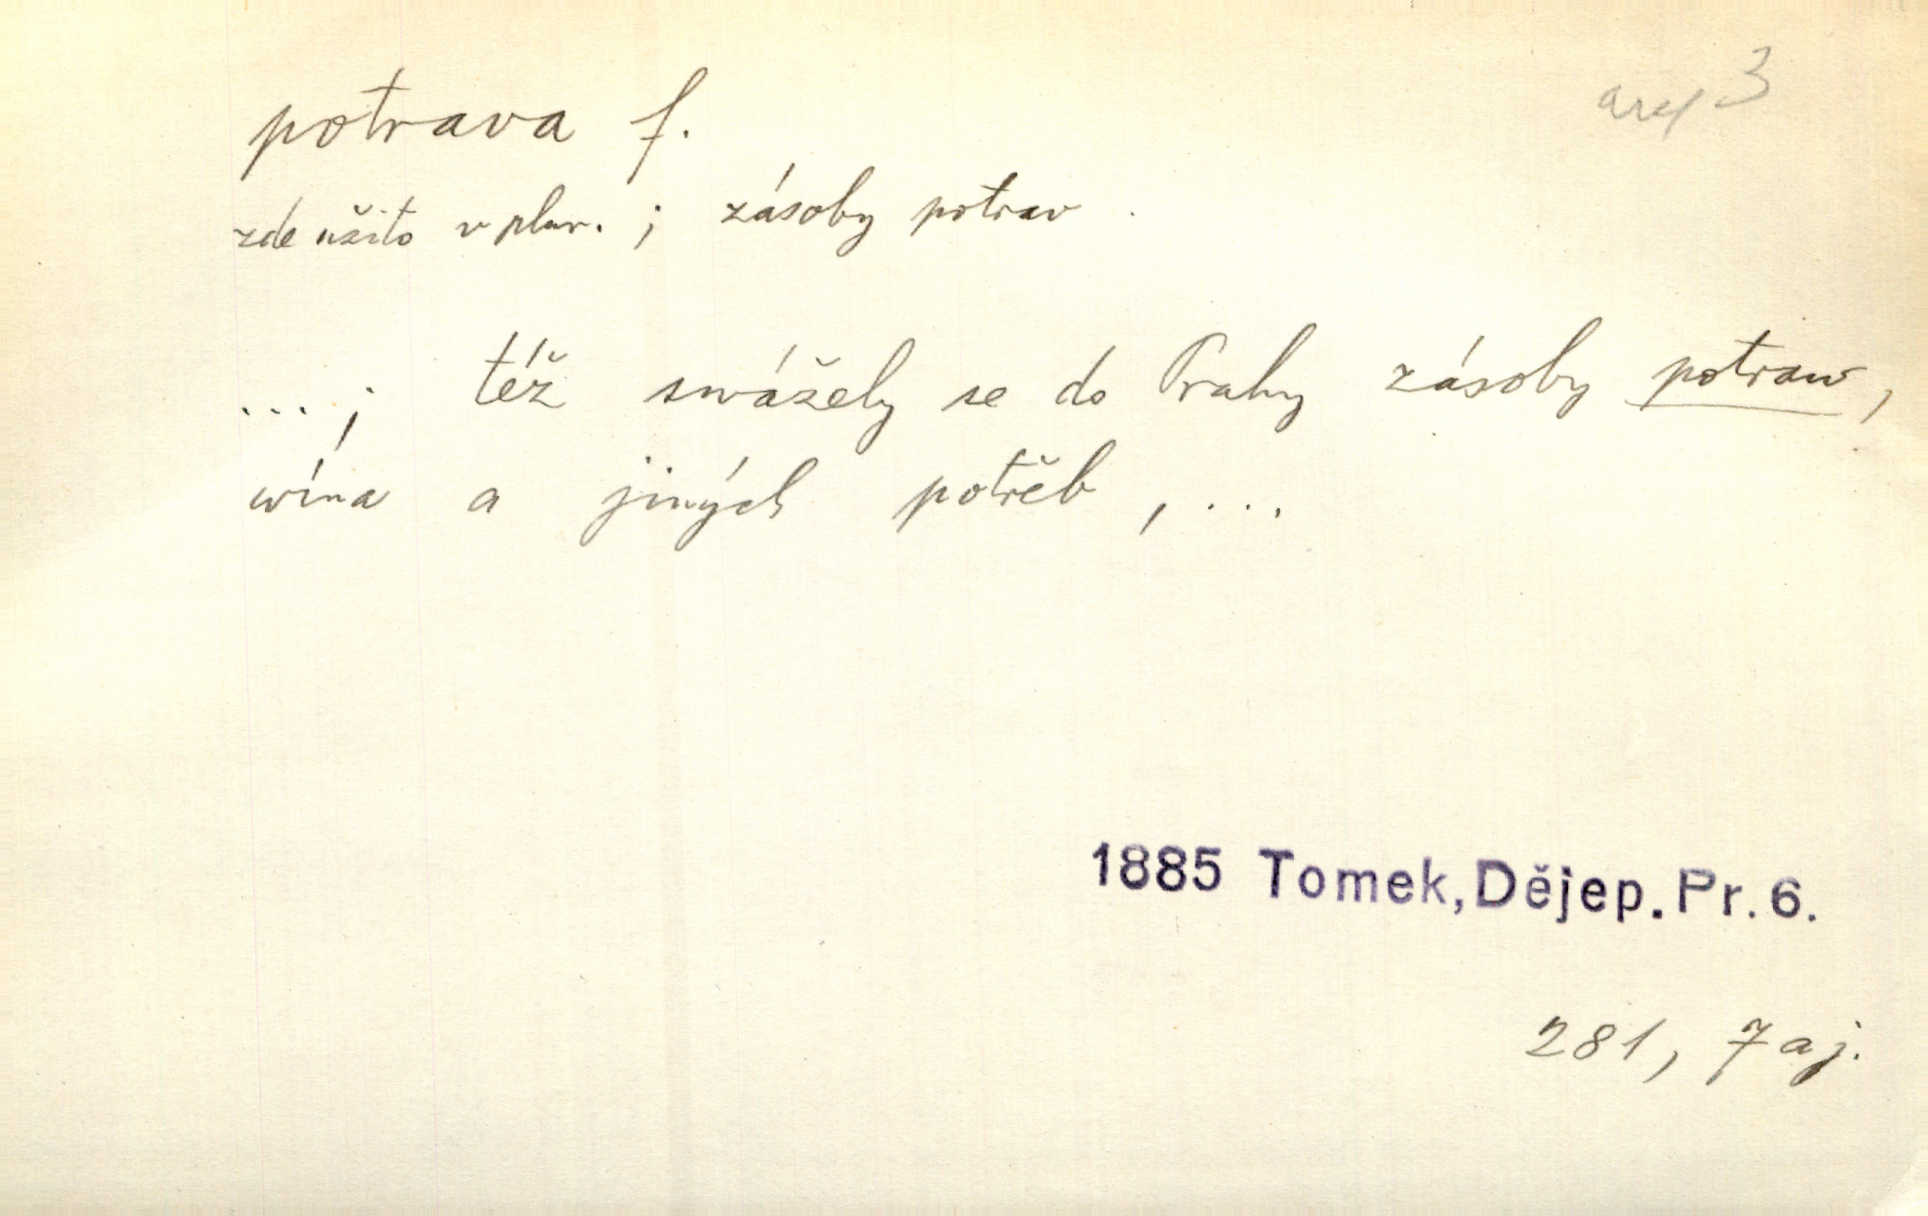 potrava f.
3
zde užito v plur. ; zásoby potrav.
... ; též swážely se do Prahy zásoby potraw,
wína a jiných potřeb, ...
1885 Tomek, Dějep. Pr. 6.
281, 7 aj.